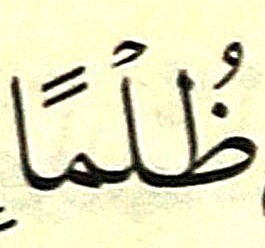 ظُلۡمًا